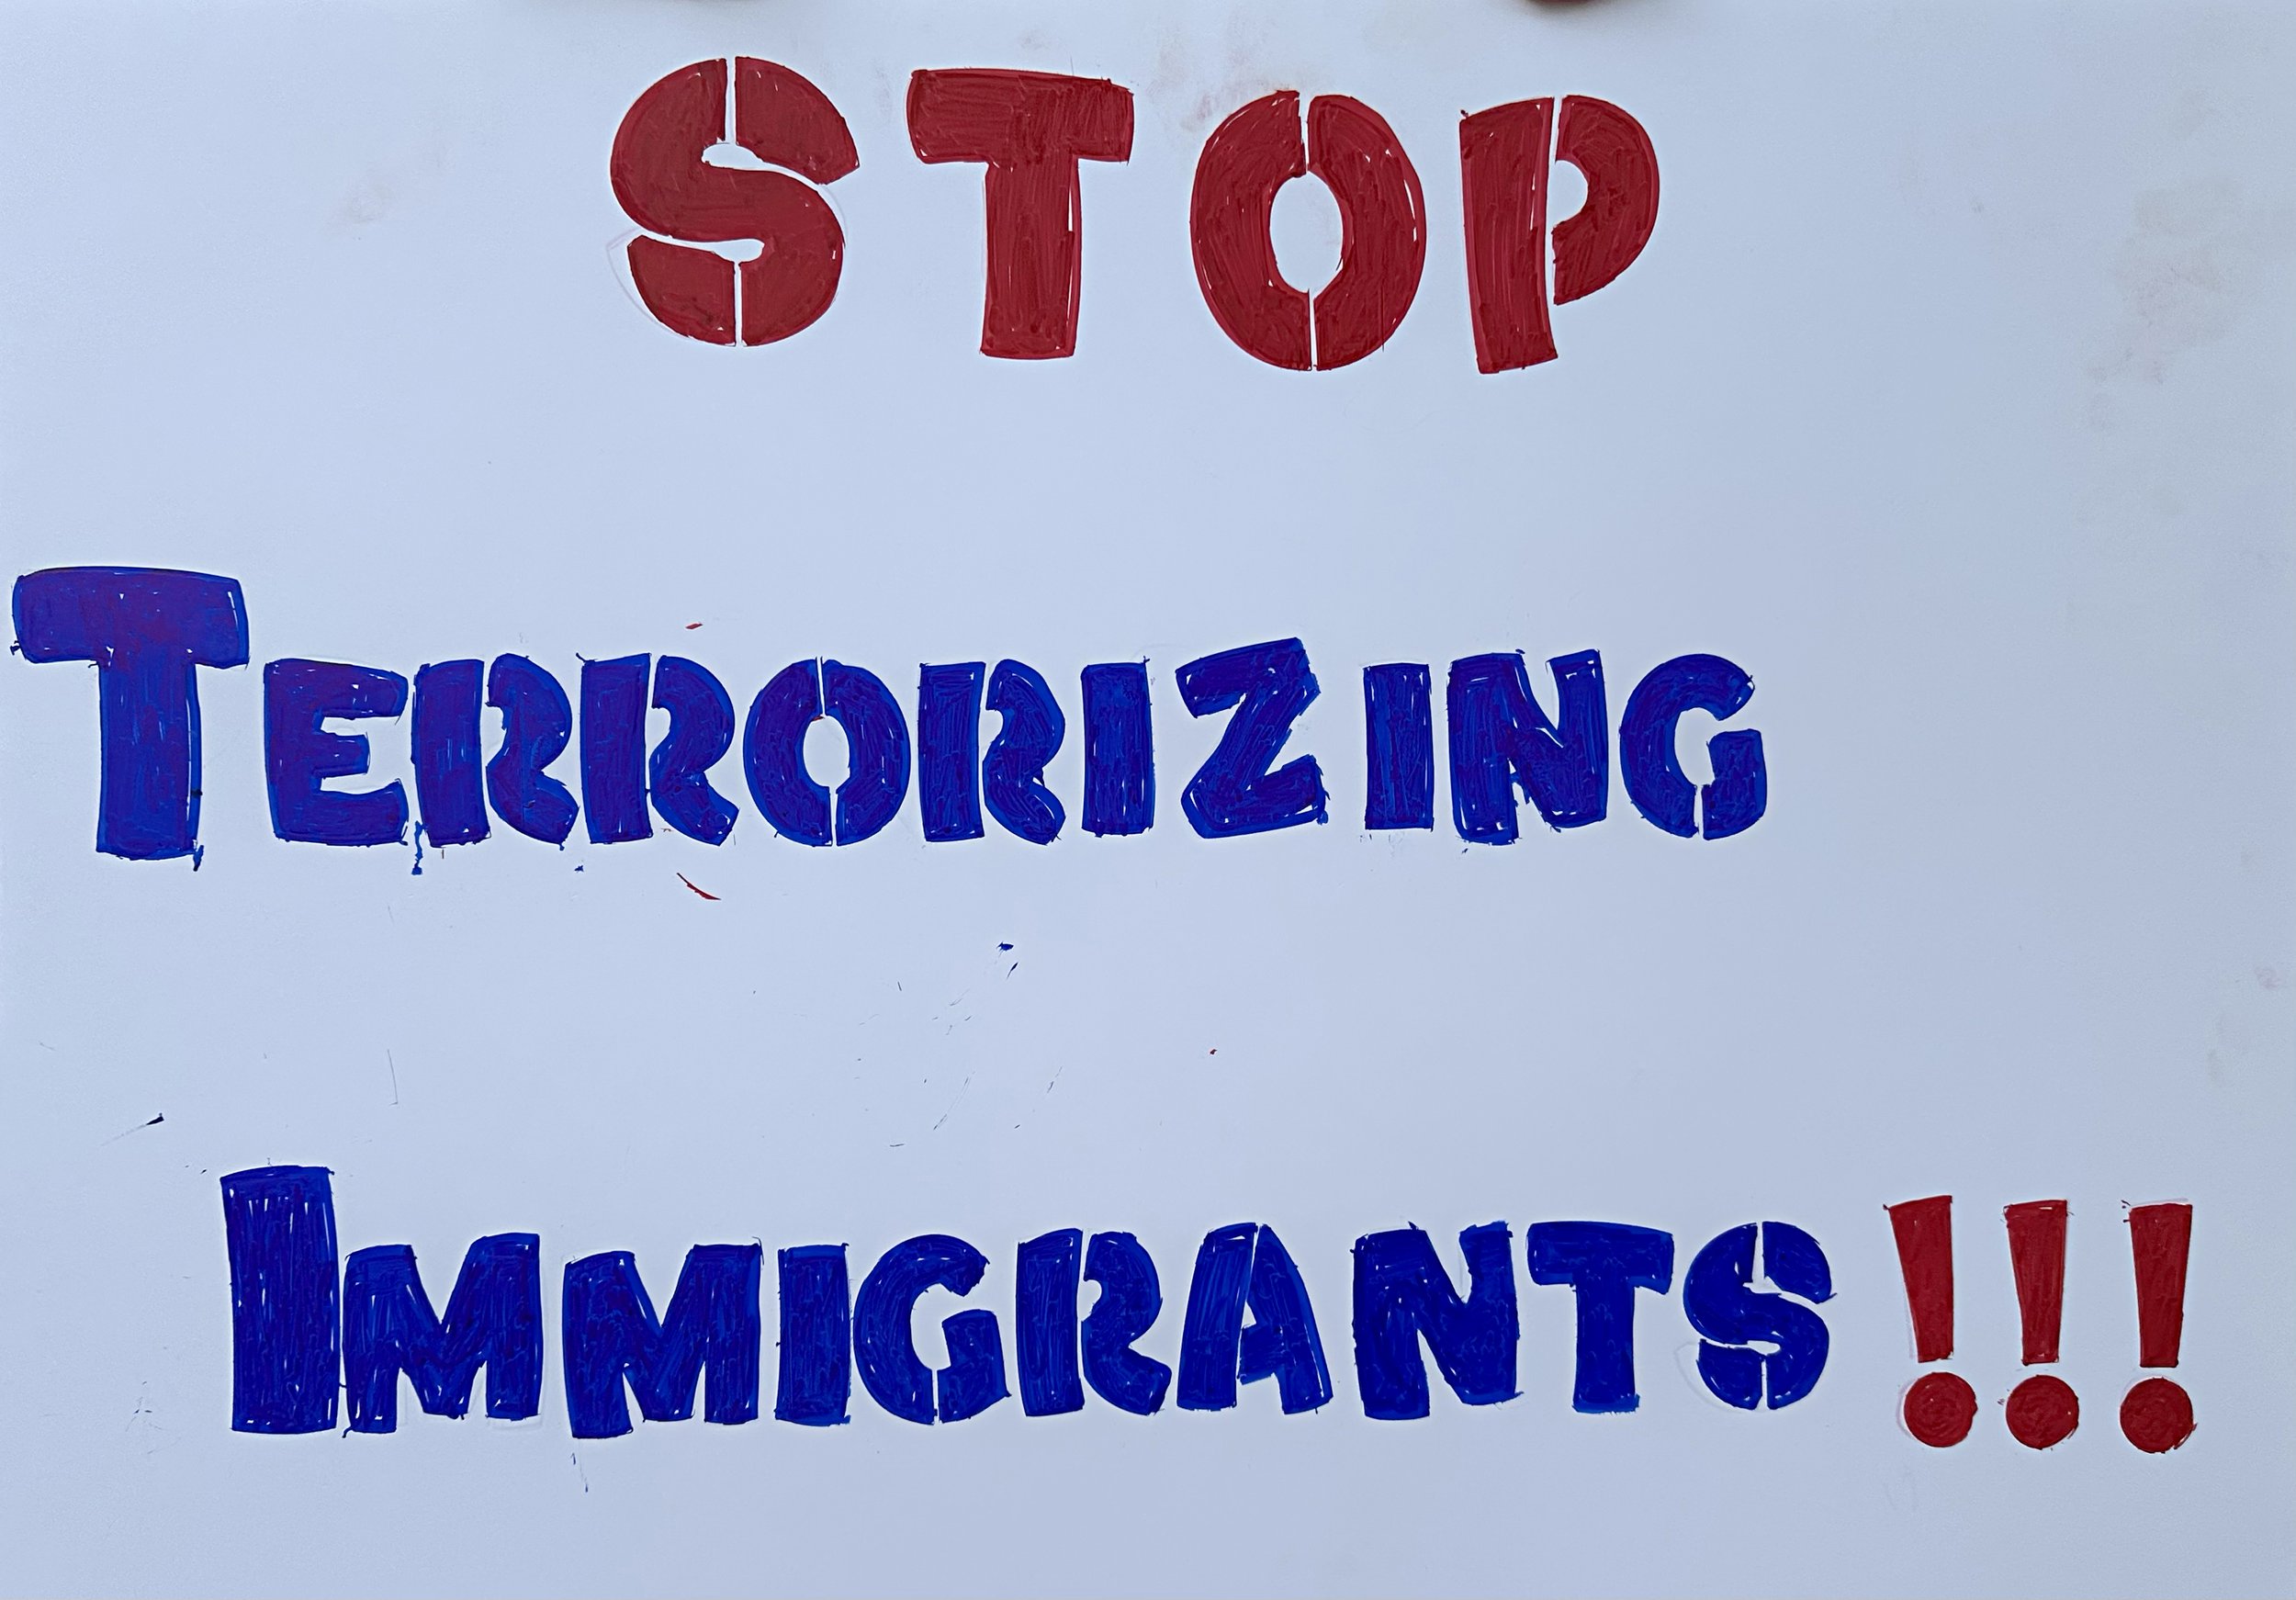 STOP
TERRORIZING
IMMIGRANTS!!!